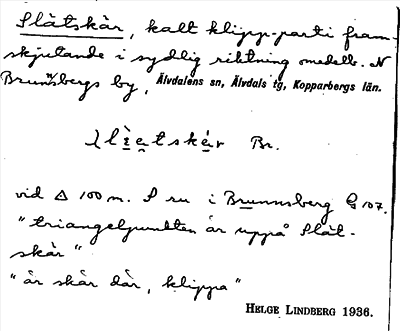 Slåtskär, kalt klipp-parti fram-
skjutande i sydlig riktning omedelb. N
Brunnsbergs by, Älvdalens sn, Älvdals tg, Kopparbergs län.
Br.
vid △ 100 m. S ru i Brunnsberg G 107.
"triangelpunkten är uppå Slåt-
skär"
"är skär där, klippa"
HELGE LINDBERG 1936.